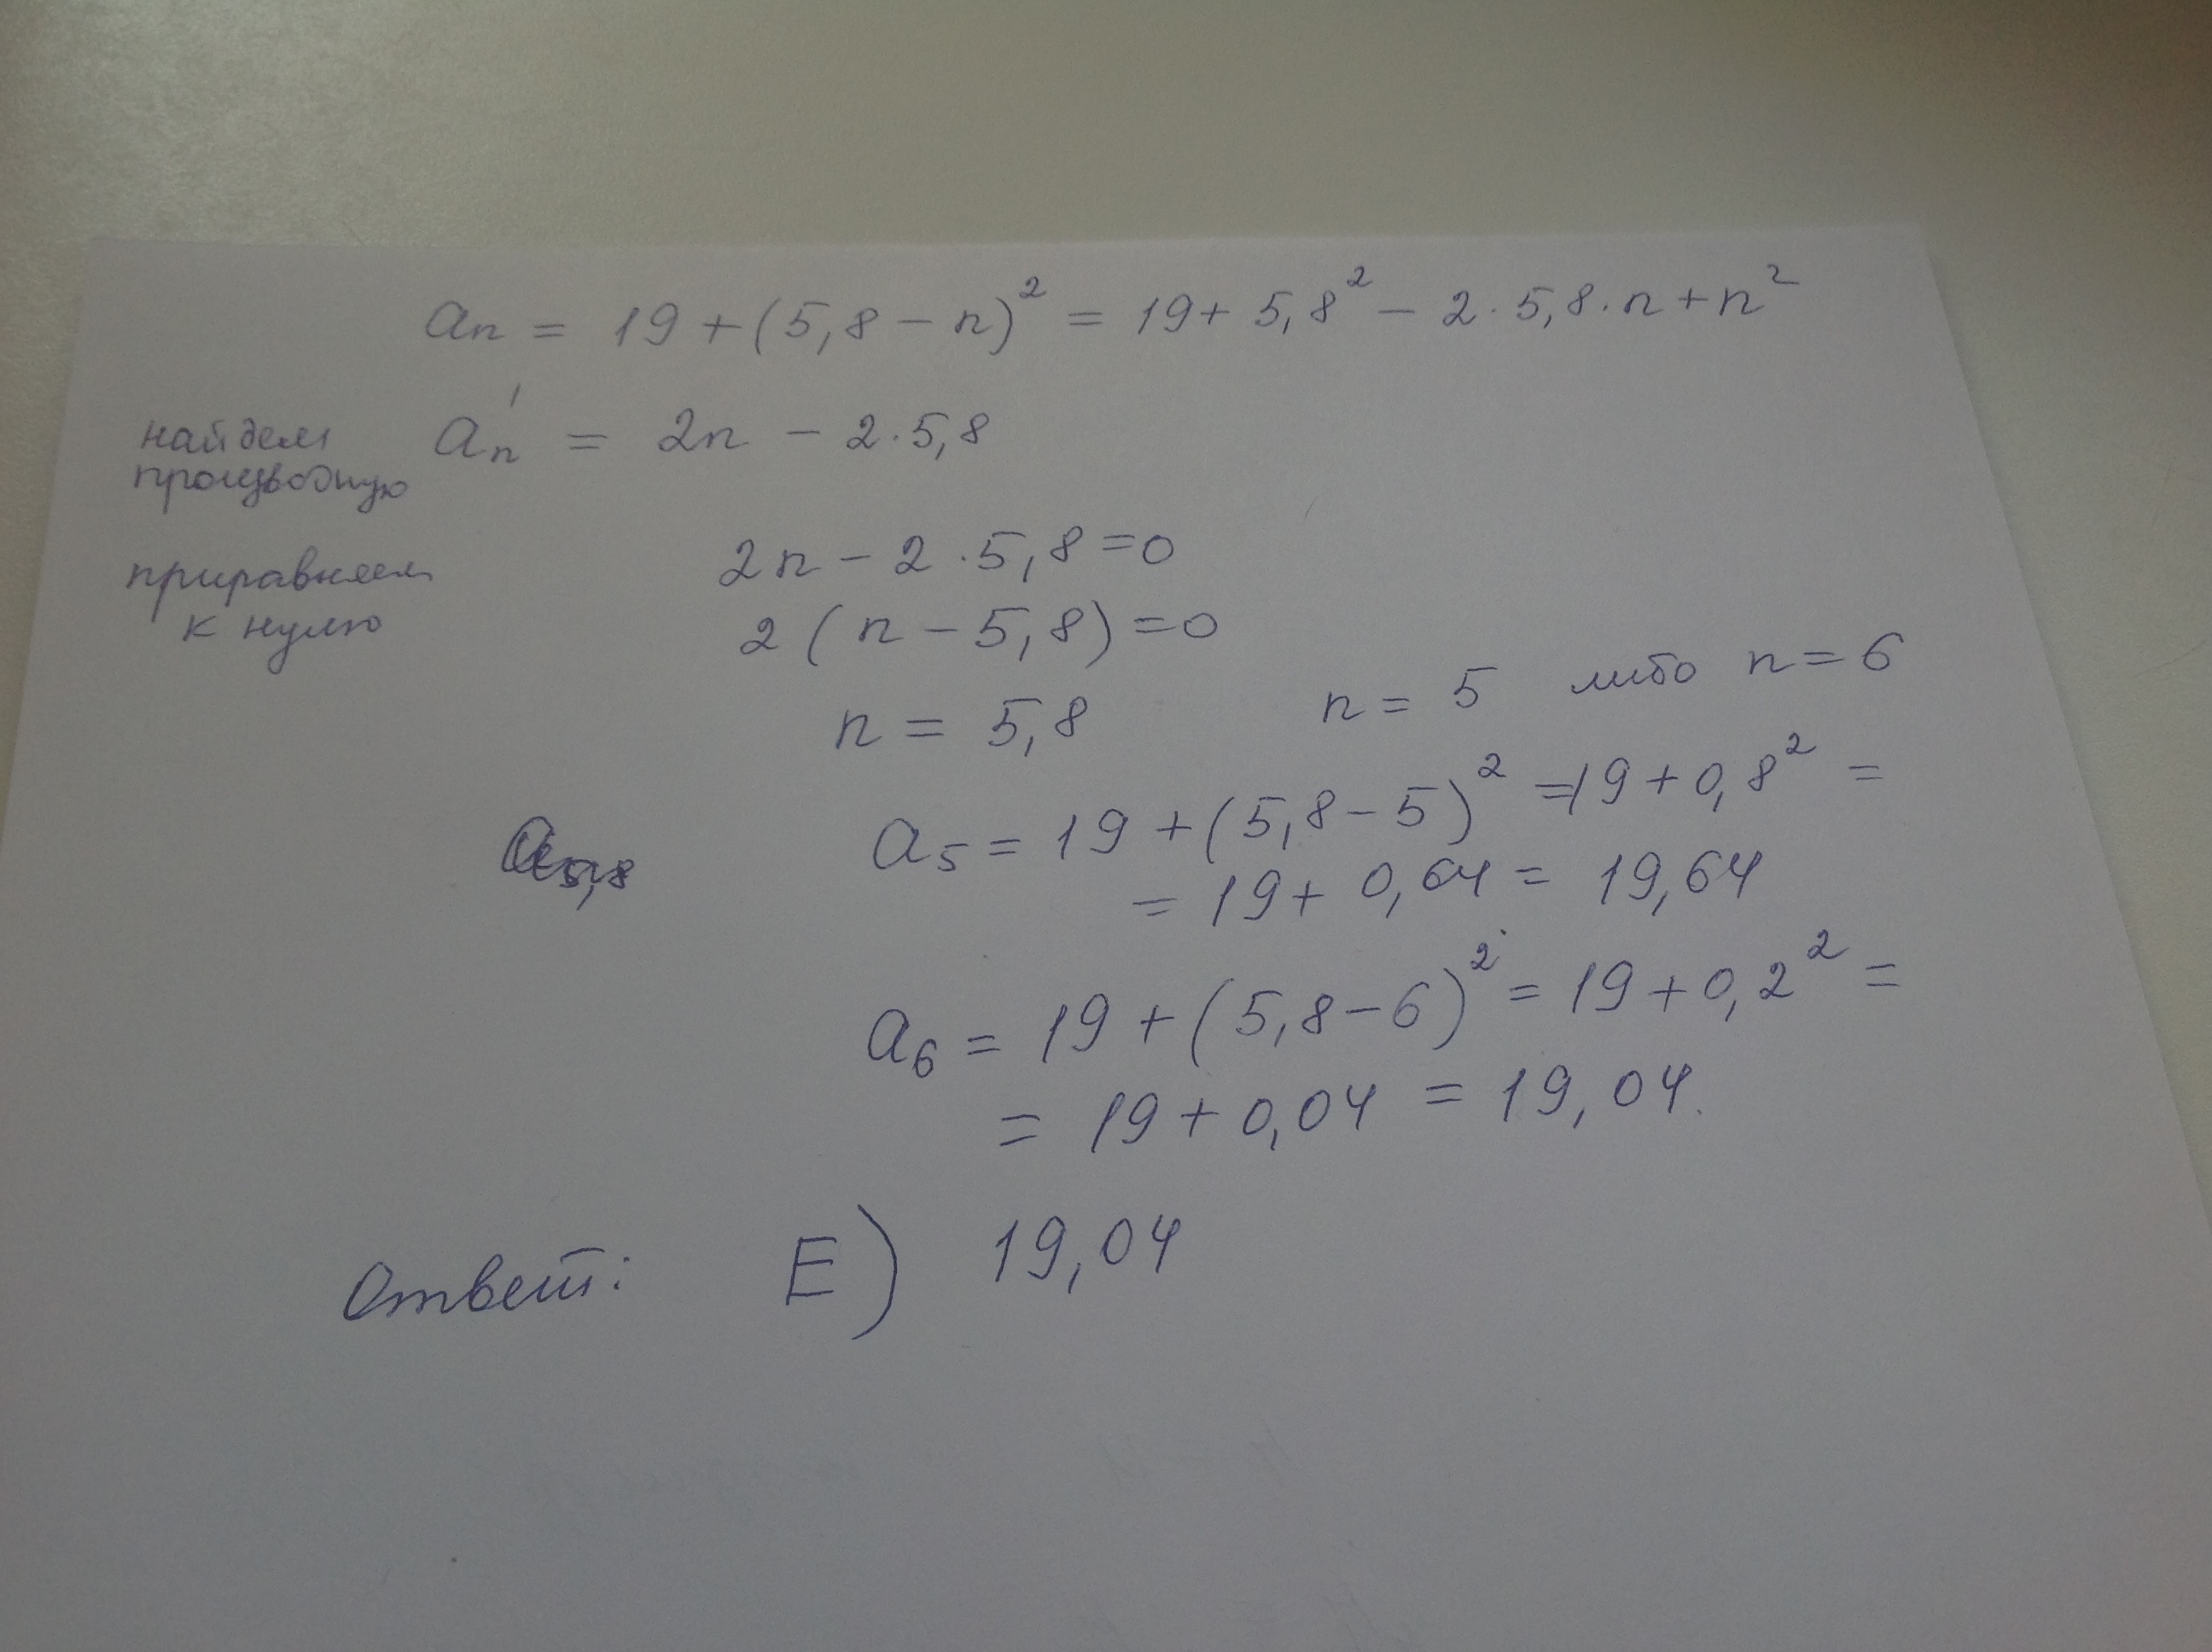 aₙ = 19 + (5,8 - n)² = 19 + 5,8² - 2·5,8·n + n²
найдем
производную
aₙ' = 2n - 2·5,8
приравняем
к нулю
2n - 2·5,8 = 0
2(n - 5,8) = 0
n = 5,8 n = 5 либо n = 6
a₅ = 19 + (5,8 - 5)² = 19 + 0,8² =
= 19 + 0,64 = 19,64
a₆ = 19 + (5,8 - 6)² = 19 + 0,2² =
= 19 + 0,04 = 19,04.
Ответ: E) 19,04